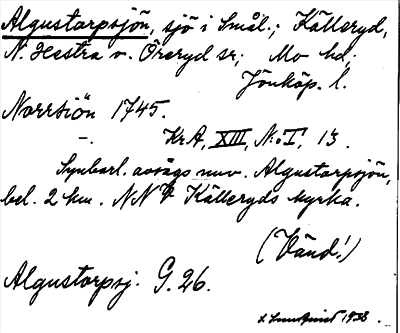 Algustorpsjön, sjö i Smål.; Källeryd,
N. Hestra o. Öreryd sr; Mo hd;
Jönköp. l.
Norrsiön 1745.
–. KrA, XIII, N:o I, 13.
Synbarl. avsågs nuv. Algustorpsjön,
bel. 2 km. NNV Källeryds kyrka.
(Vänd!)
Algustorpsj. G. 26.
1938.